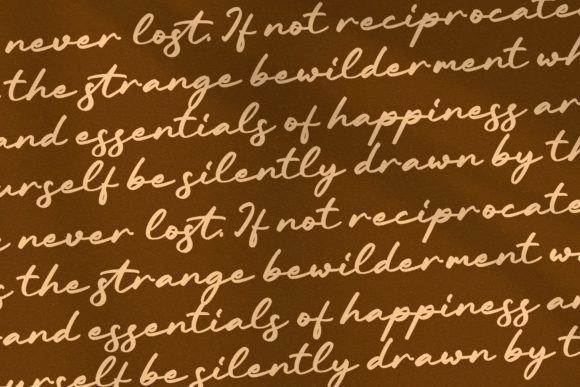 never lost. If not reciprocate
the strange bewilderment wh
and essentials of happiness ar
urself be silently drawn by th
never lost. If not reciprocate
s the strange bewilderment w
and essentials of happiness ar
urself be silently drawn by t